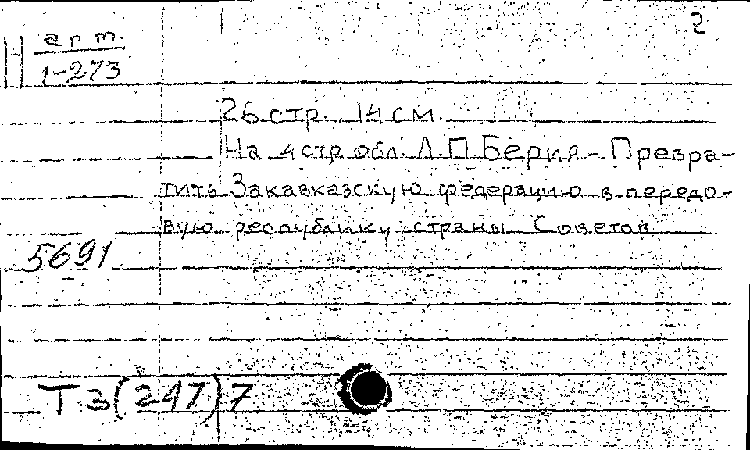 2
Н арт.
1-273
26 стр. 14 см.
На 4 стр. обл. Л. П. Берия - Превра-
тить Закавказскую федерацию в передо-
вую республику страны Советов
5691
Т3(247)7